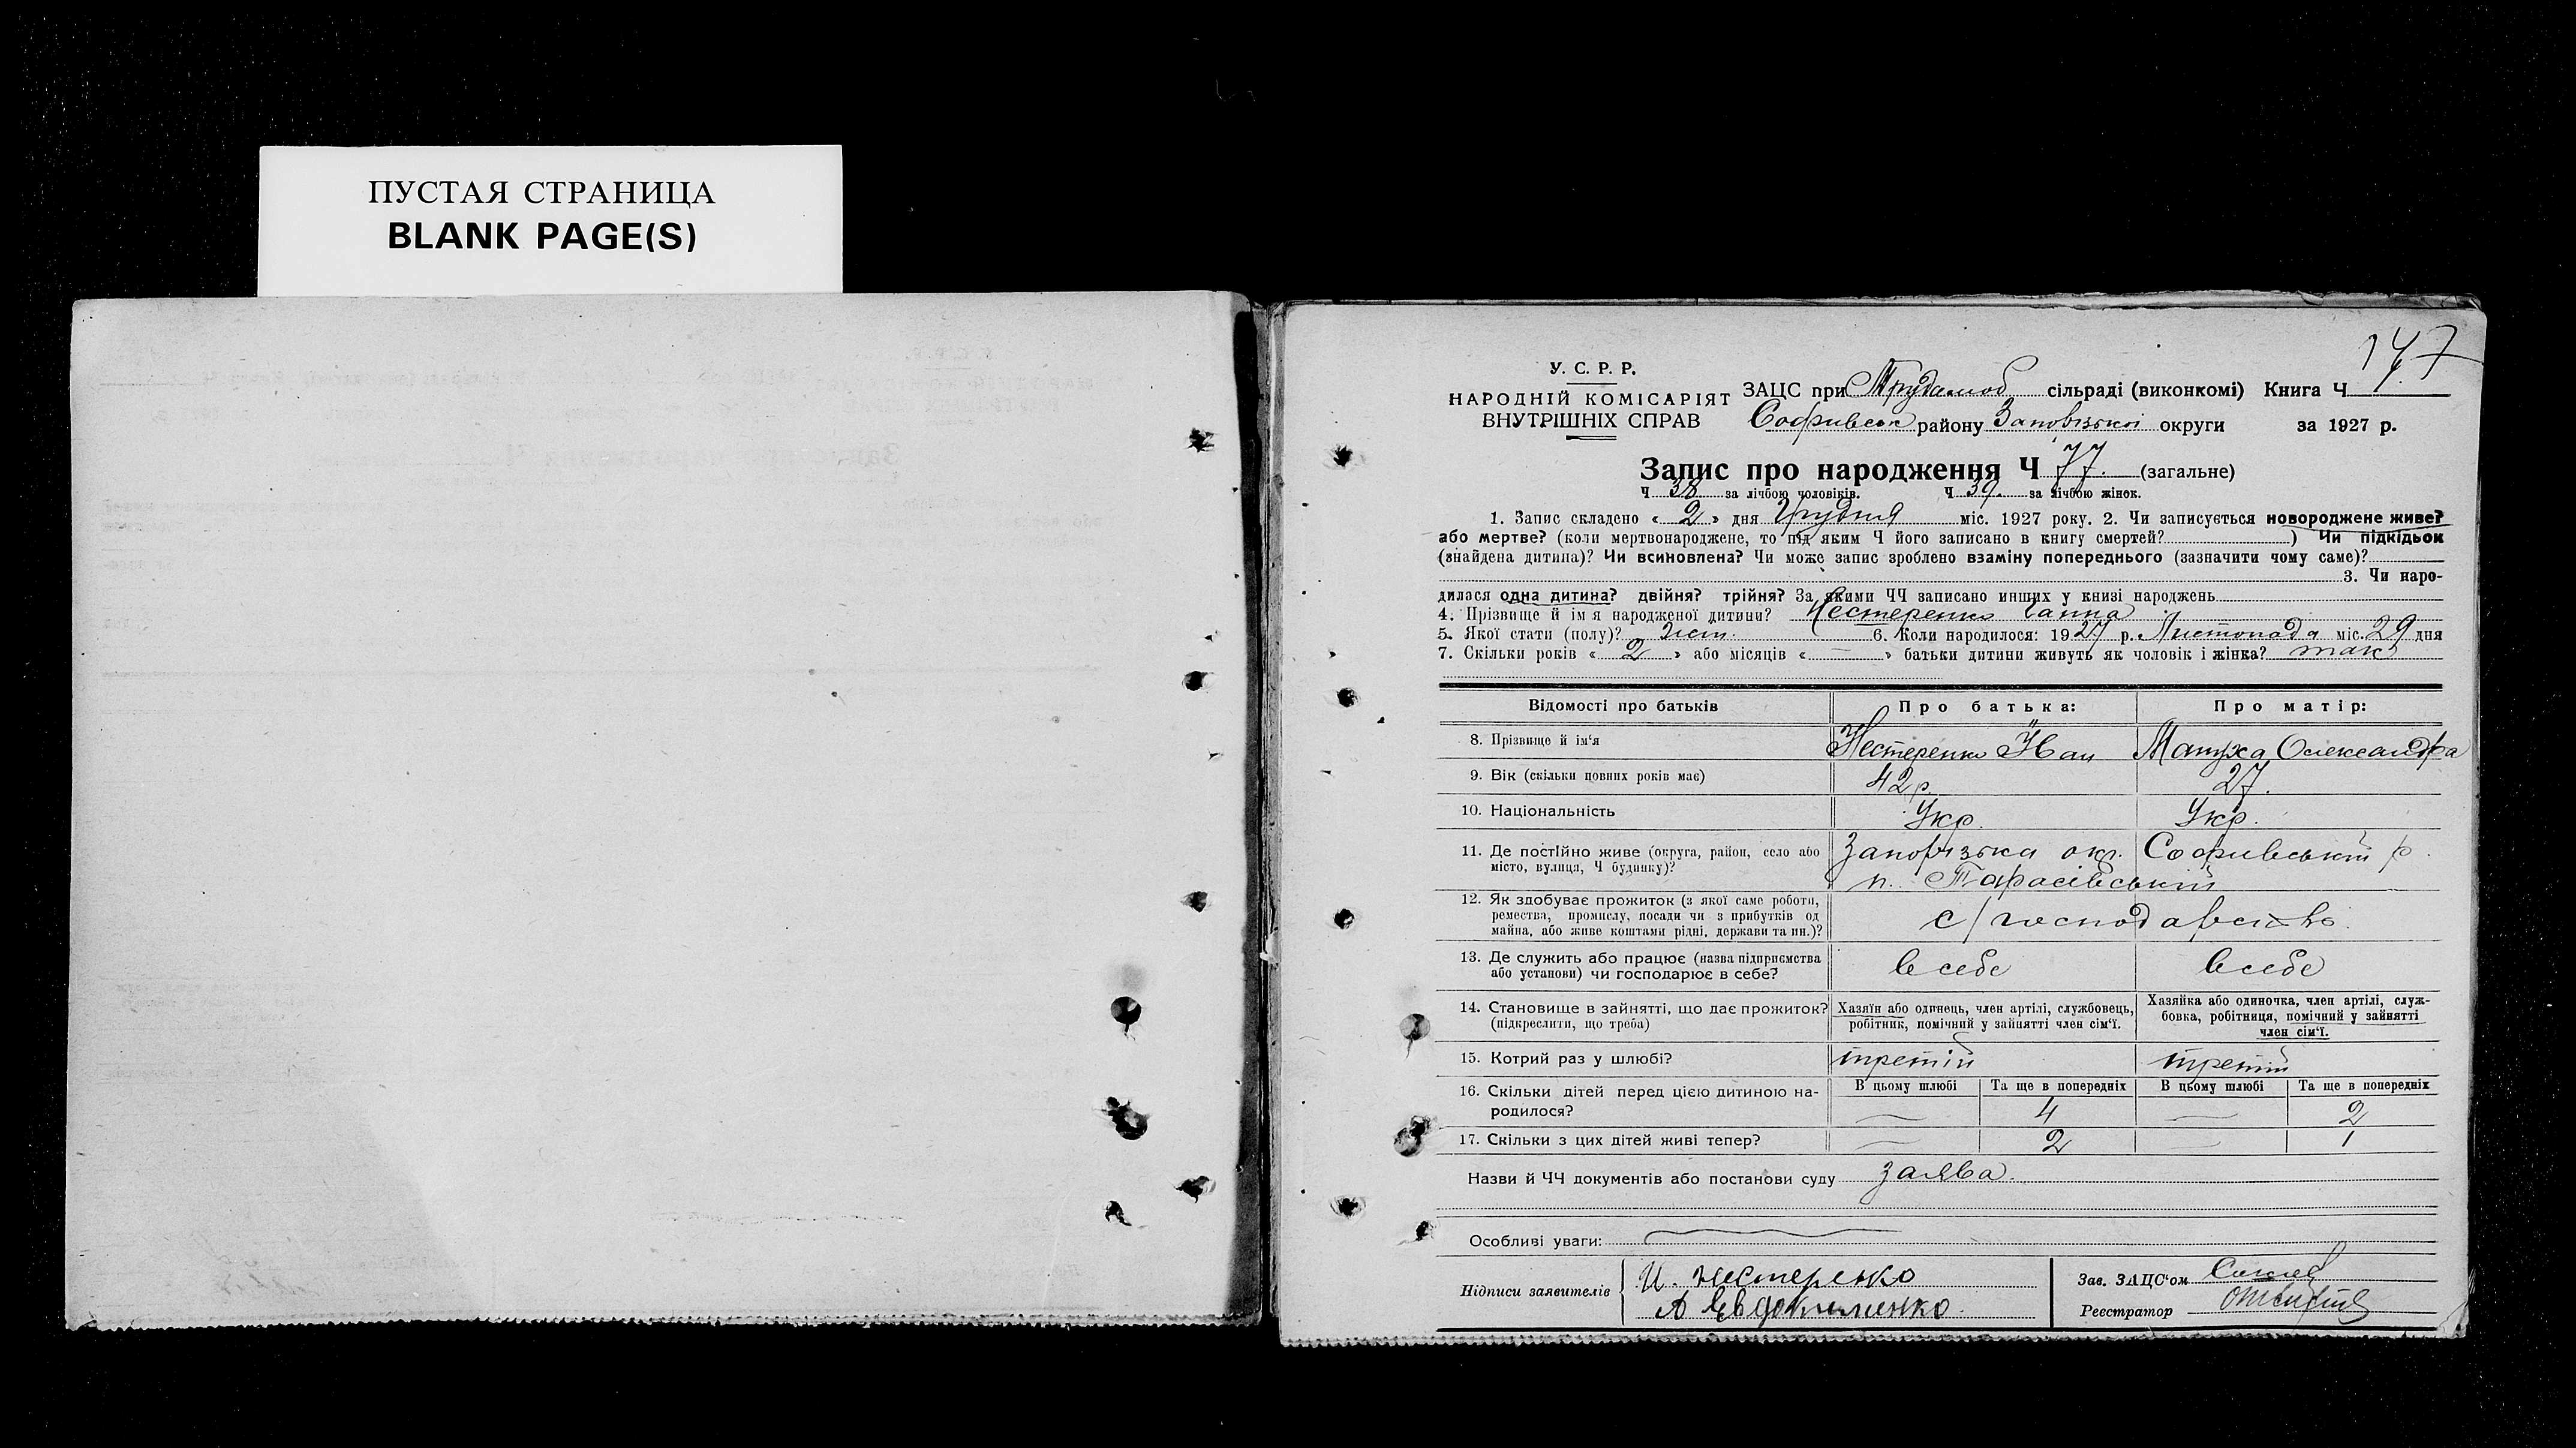 ПУСТАЯ СТРАНИЦА
BLANK PAGE(S)
147
У. С. Р. Р.
НАРОДНІЙ КОМІСАРІЯТ
ВНУТРІШНІХ СПРАВ
ЗАЦС при Трудамоб сільраді (виконкомі) Книга Ч
Софиевськ району Запорізької округи за 1927 р.
Запис про народження Ч 77. (загальне)
Ч 38 за лічбою чоловіків. Ч 39. за лічбою жінок.
1. Запис складено « 2 » дня Грудня міс. 1927 року. 2. Чи записується новороджене живе?
або мертве? (коли мертвонароджене, то під яким Ч його записано в книгу смертей? ) Чи підкідьок
(знайдена дитина)? Чи всиновлена? Чи може запис зроблено взаміну попереднього (зазначити чому саме)?
3. Чи наро-
дилася одна дитина? двійня? трійня? За якими ЧЧ записано инших у книзі народжень
4. Прізвище й ім'я народженої дитини? Нестеренко Ганна
5. Якої стати (полу)? жіт. 6. Коли народилося: 1927 р. Листопада міс. 29 дня
7. Скільки років « 2 » або місяців « — » батьки дитини живуть як чоловік і жінка? так
Відомості про батьків Про батька: Про матір:
8. Прізвище й ім'я Нестеренко Іван Мануха Олександра
9. Вік (скільки повних років має) 42 р. 27.
10. Національність Укр. Укр.
11. Де постійно живе (округа, район, село або місто, вулиця, Ч будинку)? Запорізька окр. Софиевський р.
п. Тарасівський
12. Як здобуває прожиток (з якої саме роботи,
ремества, промислу, посади чи з прибутків од
майна, або живе коштами рідні, держави та ин.)? с/господарство.
13. Де служить або працює (назва підприємства
або установи) чи господарює в себе? в себе в себе
14. Становище в зайнятті, що дає прожиток?
(підкреслити, що треба)
Хазяїн або одинець, член артілі, службовець,
робітник, помічний у зайнятті член сім'ї.
Хазяйка або одиночка, член артілі, служ-
бовка, робітниця, помічний у зайнятті
член сім'ї.
15. Котрий раз у шлюбі? третій третій
16. Скільки дітей перед цією дитиною на-
родилося?
В цьому шлюбі Та ще в попередніх В цьому шлюбі Та ще в попередніх
— 4 — 2
17. Скільки з цих дітей живі тепер? — 2 — 1
Назви й ЧЧ документів або постанови суду заява.
Особливі уваги:
Підписи заявителів И. Нестеренко
А Евдокименко.
Зав. ЗАЦС'ом
Реєстратор